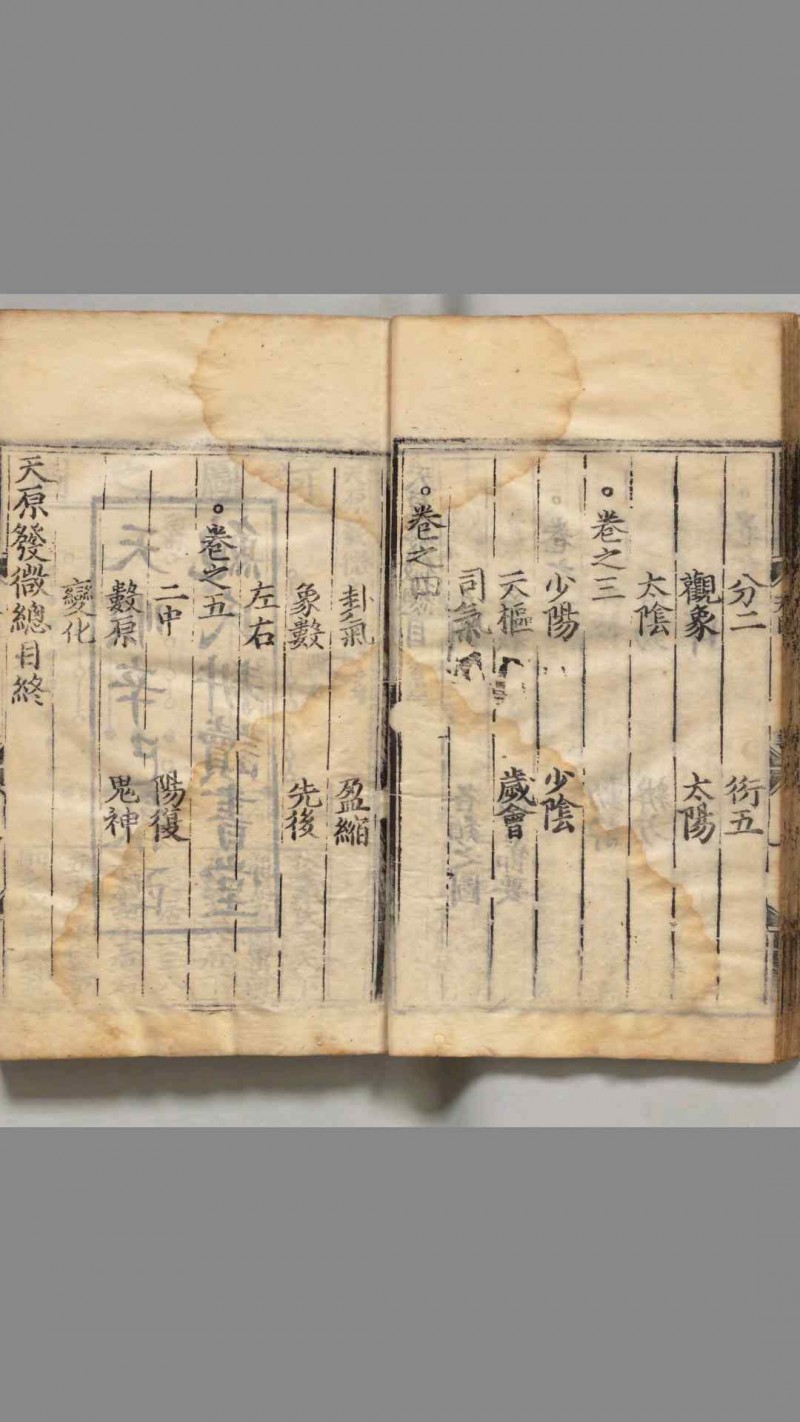 分二 衍五
觀象 太陽
太陰
。卷之三
少陽 少陰
天樞 歲會
司氣
。卷之四
卦氣 盈縮
象數 先後
左右
。卷之五
二中 陽復
數原 鬼神
變化
天原發微總目終